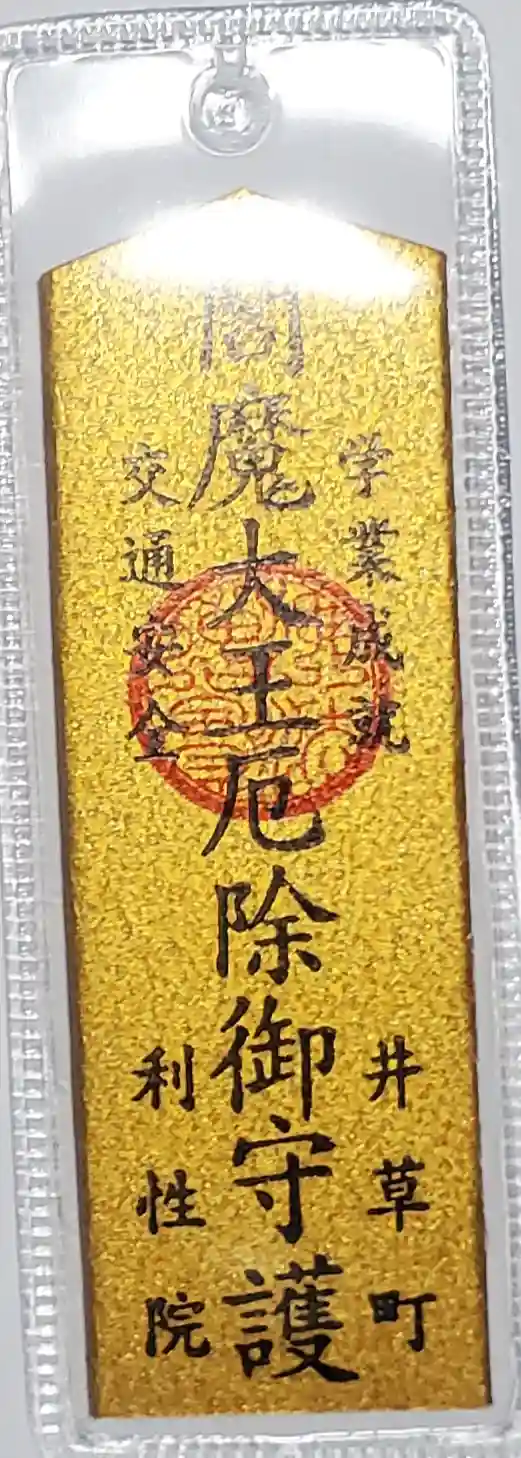 学業成就
井草町
閻魔大王厄除御守護
交通安全
利性院